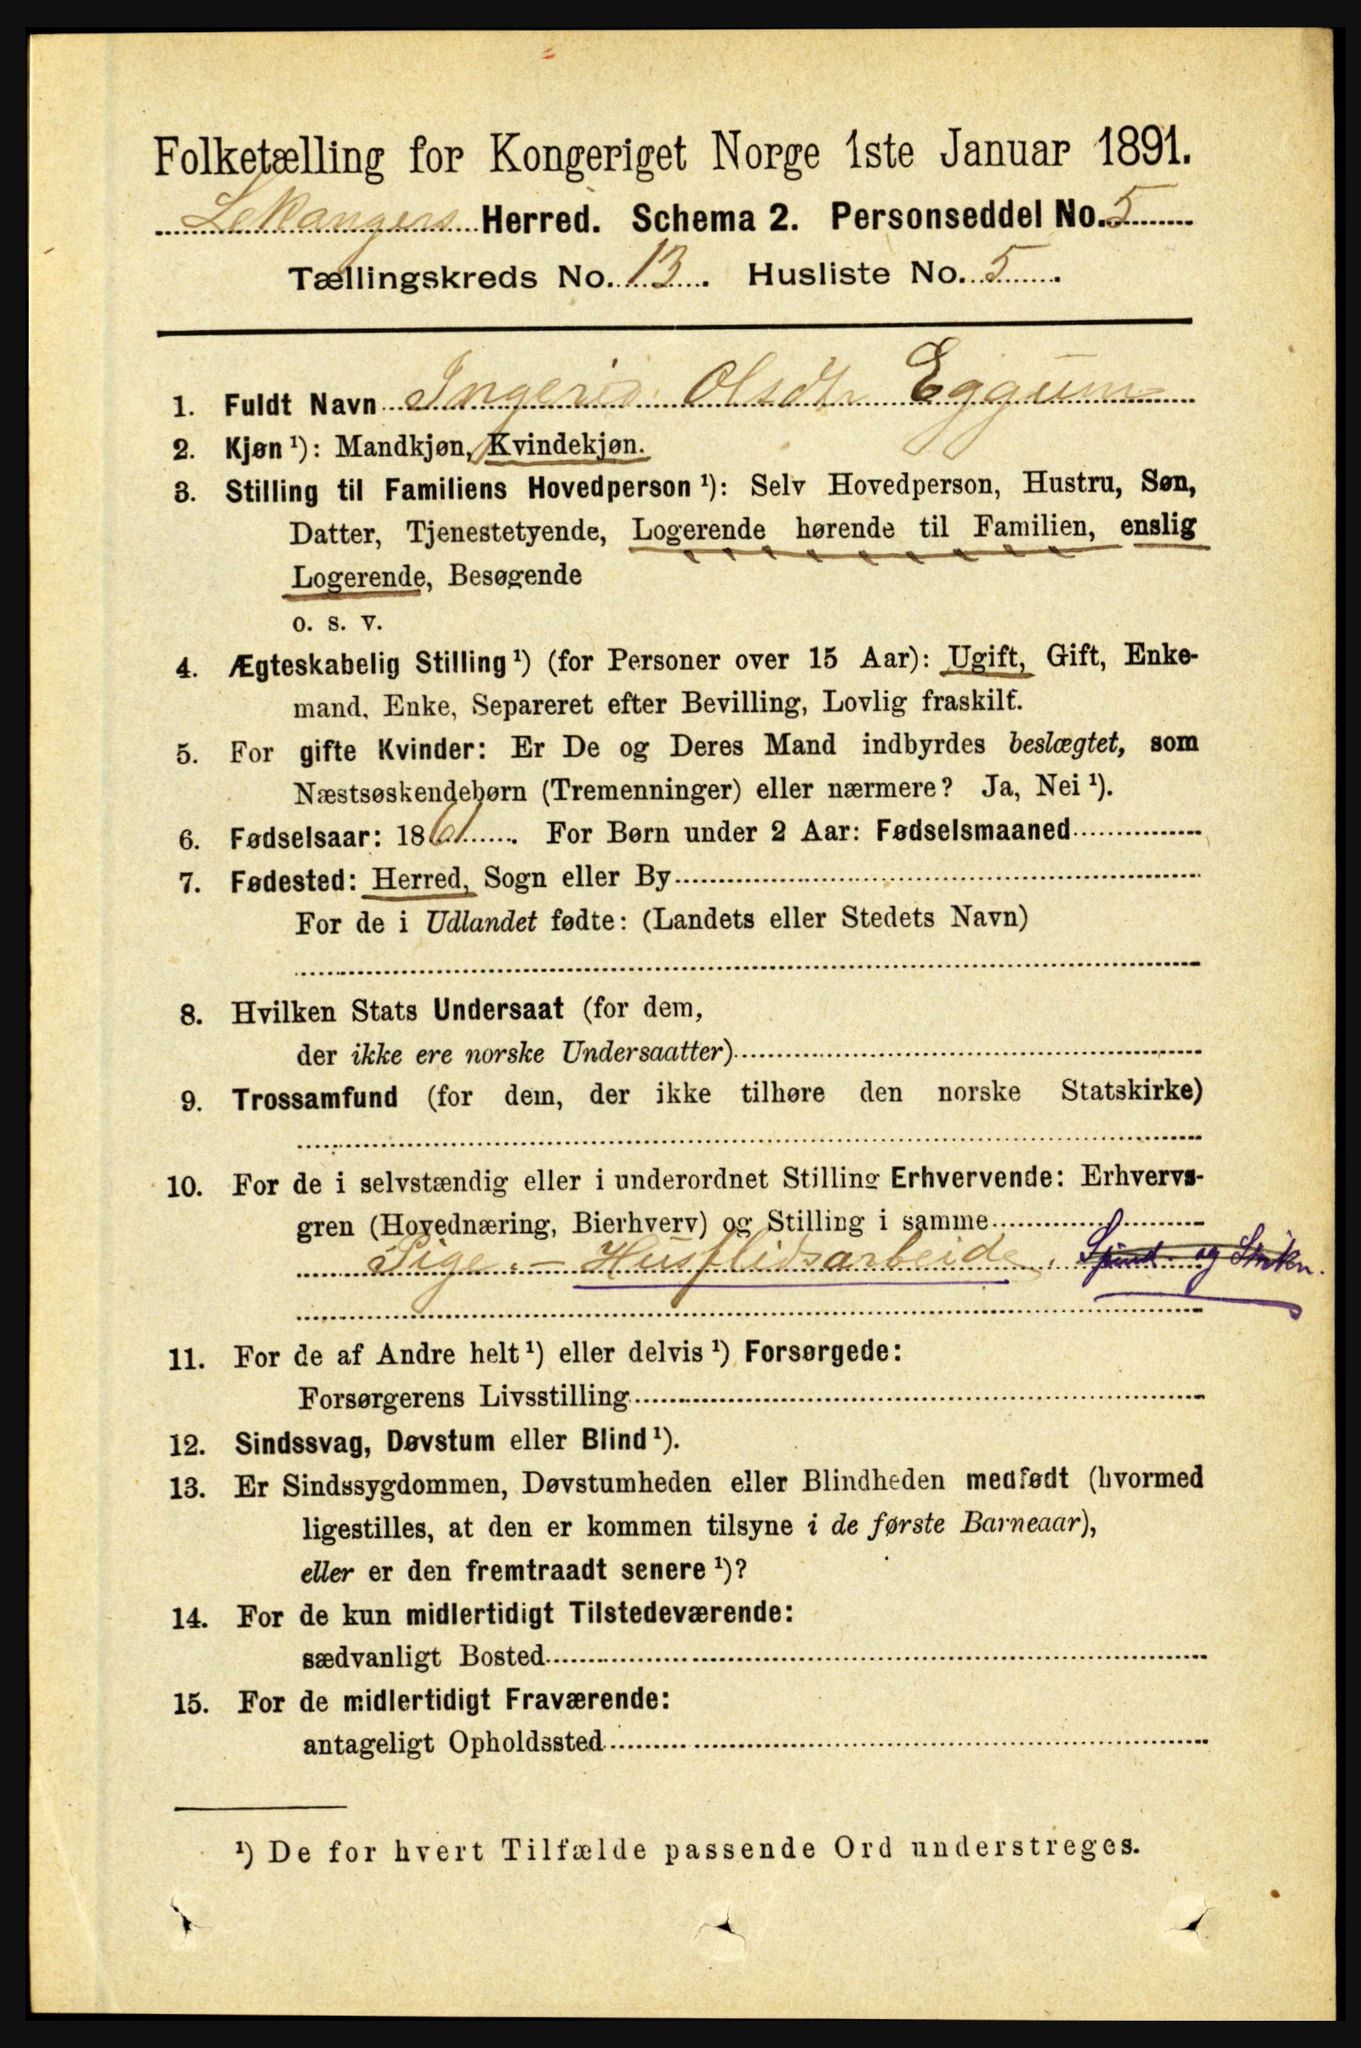 Folketælling for Kongeriget Norge 1ste Januar 1891.
Lekangers Herred. Schema 2. Personseddel No. 5
Tællingskreds No. 13. Husliste No. 5.
1. Fuldt Navn Ingerid Olsdtr Eggum
2. Kjøn ¹): Mandkjøn, Kvindekjøn.
3. Stilling til Familiens Hovedperson ¹): Selv Hovedperson, Hustru, Søn,
Datter, Tjenestetyende, Logerende hørende til Familien, enslig
Logerende, Besøgende
o. s. v.
4. Ægteskabelig Stilling ¹) (for Personer over 15 Aar): Ugift, Gift, Enke-
mand, Enke, Separeret efter Bevilling, Lovlig fraskilt.
5. For gifte Kvinder: Er De og Deres Mand indbyrdes beslægtet, som
Næstsøskendebørn (Tremenninger) eller nærmere? Ja, Nei ¹).
6. Fødselsaar: 1861. For Børn under 2 Aar: Fødselsmaaned
7. Fødested: Herred, Sogn eller By
For de i Udlandet fødte: (Landets eller Stedets Navn)
8. Hvilken Stats Undersaat (for dem,
der ikke ere norske Undersaatter)
9. Trossamfund (for dem, der ikke tilhøre den norske Statskirke)
10. For de i selvstændig eller i underordnet Stilling Erhvervende: Erhvervs-
gren (Hovednæring, Bierhverv) og Stilling i samme
Pige. - Husflidsarbeide. Spind. og Strikn.
11. For de af Andre helt ¹) eller delvis ¹) Forsørgede:
Forsørgerens Livsstilling
12. Sindssvag, Døvstum eller Blind ¹).
13. Er Sindssygdommen, Døvstumheden eller Blindheden medfødt (hvormed
ligestilles, at den er kommen tilsyne i de første Barneaar),
eller er den fremtraadt senere ¹)?
14. For de kun midlertidigt Tilstedeværende:
sædvanligt Bosted
15. For de midlertidigt Fraværende:
antageligt Opholdssted
¹) De for hvert Tilfælde passende Ord understreges.